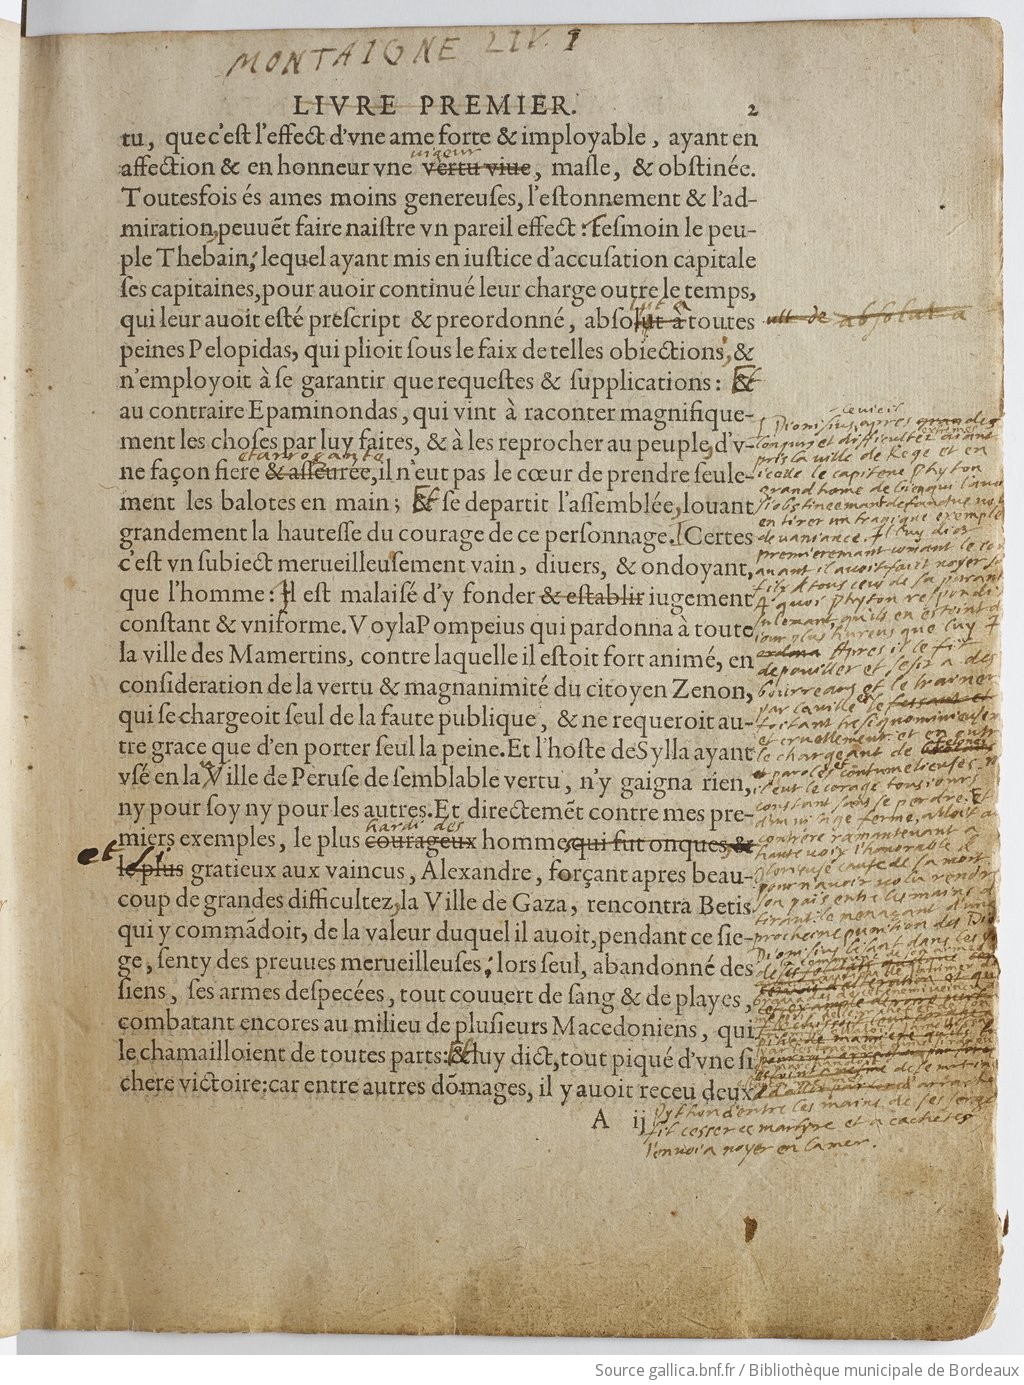 MONTAIGNE LIV. I
LIVRE PREMIER. 2
tu, que c'est l'effect d'vne ame forte & imployable, ayant en
vigeur
affection & en honneur vne vertu viue, masle, & obstinée.
Toutesfois és ames moins genereuses, l'estonnement & l'ad-
miration, peuuẽt faire naistre vn pareil effect: Tesmoin le peu-
ple Thebain, lequel ayant mis en iustice d'accusation capitale
ses capitaines, pour auoir continué leur charge outre le temps,
qui leur auoit esté prescript & preordonné, absolut à toutes
absolut a
peines Pelopidas, qui plioit sous le faix de telles obiections, &
n'employoit à se garantir que requestes & supplications: Et
au contraire Epaminondas, qui vint à raconter magnifique-
ment les choses par luy faites, & à les reprocher au peuple, d'v-
et arrogante
ne façon fiere & asseurée, il n'eut pas le cœur de prendre seule-
ment les balotes en main; Et se departit l'assemblée, louant
grandement la hautesse du courage de ce personnage. Certes
c'est vn subiect merueilleusement vain, diuers, & ondoyant,
que l'homme: Il est malaisé d'y fonder & establir iugement
constant & vniforme. Voyla Pompeius qui pardonna à toute
la ville des Mamertins, contre laquelle il estoit fort animé, en
consideration de la vertu & magnanimité du citoyen Zenon,
qui se chargeoit seul de la faute publique, & ne requeroit au-
tre grace que d'en porter seul la peine. Et l'hoste de Sylla ayant
vsé en la Ville de Peruse de semblable vertu, n'y gaigna rien,
ny pour soy ny pour les autres. Et directemẽt contre mes pre-
hardi des
miers exemples, le plus courageux homme, qui fut onques, &
et si
le plus gratieux aux vaincus, Alexandre, forçant apres beau-
coup de grandes difficultez, la Ville de Gaza, rencontra Betis
qui y commãdoit, de la valeur duquel il auoit, pendant ce sie-
ge, senty des preuues merueilleuses, lors seul, abandonné des
siens, ses armes despecées, tout couuert de sang & de playes,
combatant encores au milieu de plusieurs Macedoniens, qui
le chamailloient de toutes parts: & luy dict, tout piqué d'vne si
chere victoire: car entre autres dõmages, il y auoit receu deux
A ij
Dionisius, apres
et difficultez
pris la ville de Rege et en
icelle le capitene Phyton
grand home de bien qui l'auoit
en tirer un tragique exemple
de vanjance. Il luy dict
premieremant comant le
auant il auoit faict noyer so
filx & tous ceus de sa parant
A quoi Phyton respondit
sulemant, qu'ils en
iour plus hureus que luy
Apres il le fit
depouiller et sesir a des
bourreaus et le trainer
par la ville
et cruellement
le chargeant de
paroles contumelieuses.
il eut le corage tousiours
constant sans se perdre. Et
d'un visage ferme, alloit au
contrere ramantevant a
haute voix l'honorable &
glorieuse cause de sa mort
pour n'auoir uolu rendre
son païs entre les mains d
tirant, le menaçant d'une
procheine punition des Dieus
Dionisius lisant dans les
Python d'entre les mains de ses serge
fit cesser ce martyre et a cachetes
l'enuoia noyer en la mer.
Source gallica.bnf.fr / Bibliothèque municipale de Bordeaux